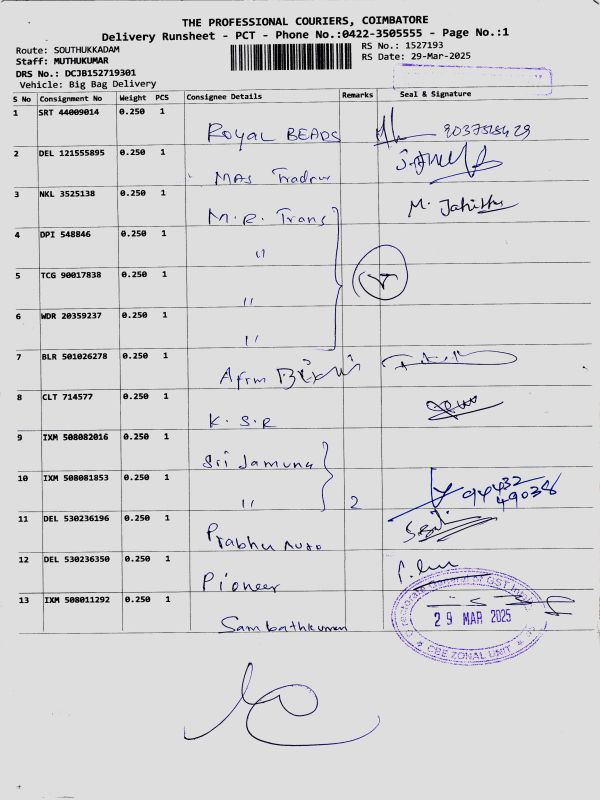 THE PROFESSIONAL COURIERS, COIMBATORE
Delivery Runsheet - PCT - Phone No.:0422-3505555 - Page No.:1
Route: SOUTHUKKADAM
RS No.: 1527193
Staff: MUTHUKUMAR
RS Date: 29-Mar-2025
DRS No.: DCJB152719301
Vehicle: Big Bag Delivery
S No Consignment No Weight PCS Consignee Details Remarks Seal & Signature
1 SRT 44009014 0.250 1
ROYAL BEADS
2 DEL 121555895 0.250 1
MAS Traders
3 NKL 3525138 0.250 1
M.R. Trans
4 DPI 548846 0.250 1
"
5 TCG 90017838 0.250 1
"
6 WDR 20359237 0.250 1
"
7 BLR 501026278 0.250 1
8 CLT 714577 0.250 1
K.S.R
9 IXM 508082016 0.250 1
Sri Jamuna
10 IXM 508081853 0.250 1
" 2 94432 49038
11 DEL 530236196 0.250 1
Prabhu Auto
12 DEL 530236350 0.250 1
Pioneer
13 IXM 508011292 0.250 1
Sambathkumar
29 MAR 2025
CBE ZONAL UNIT